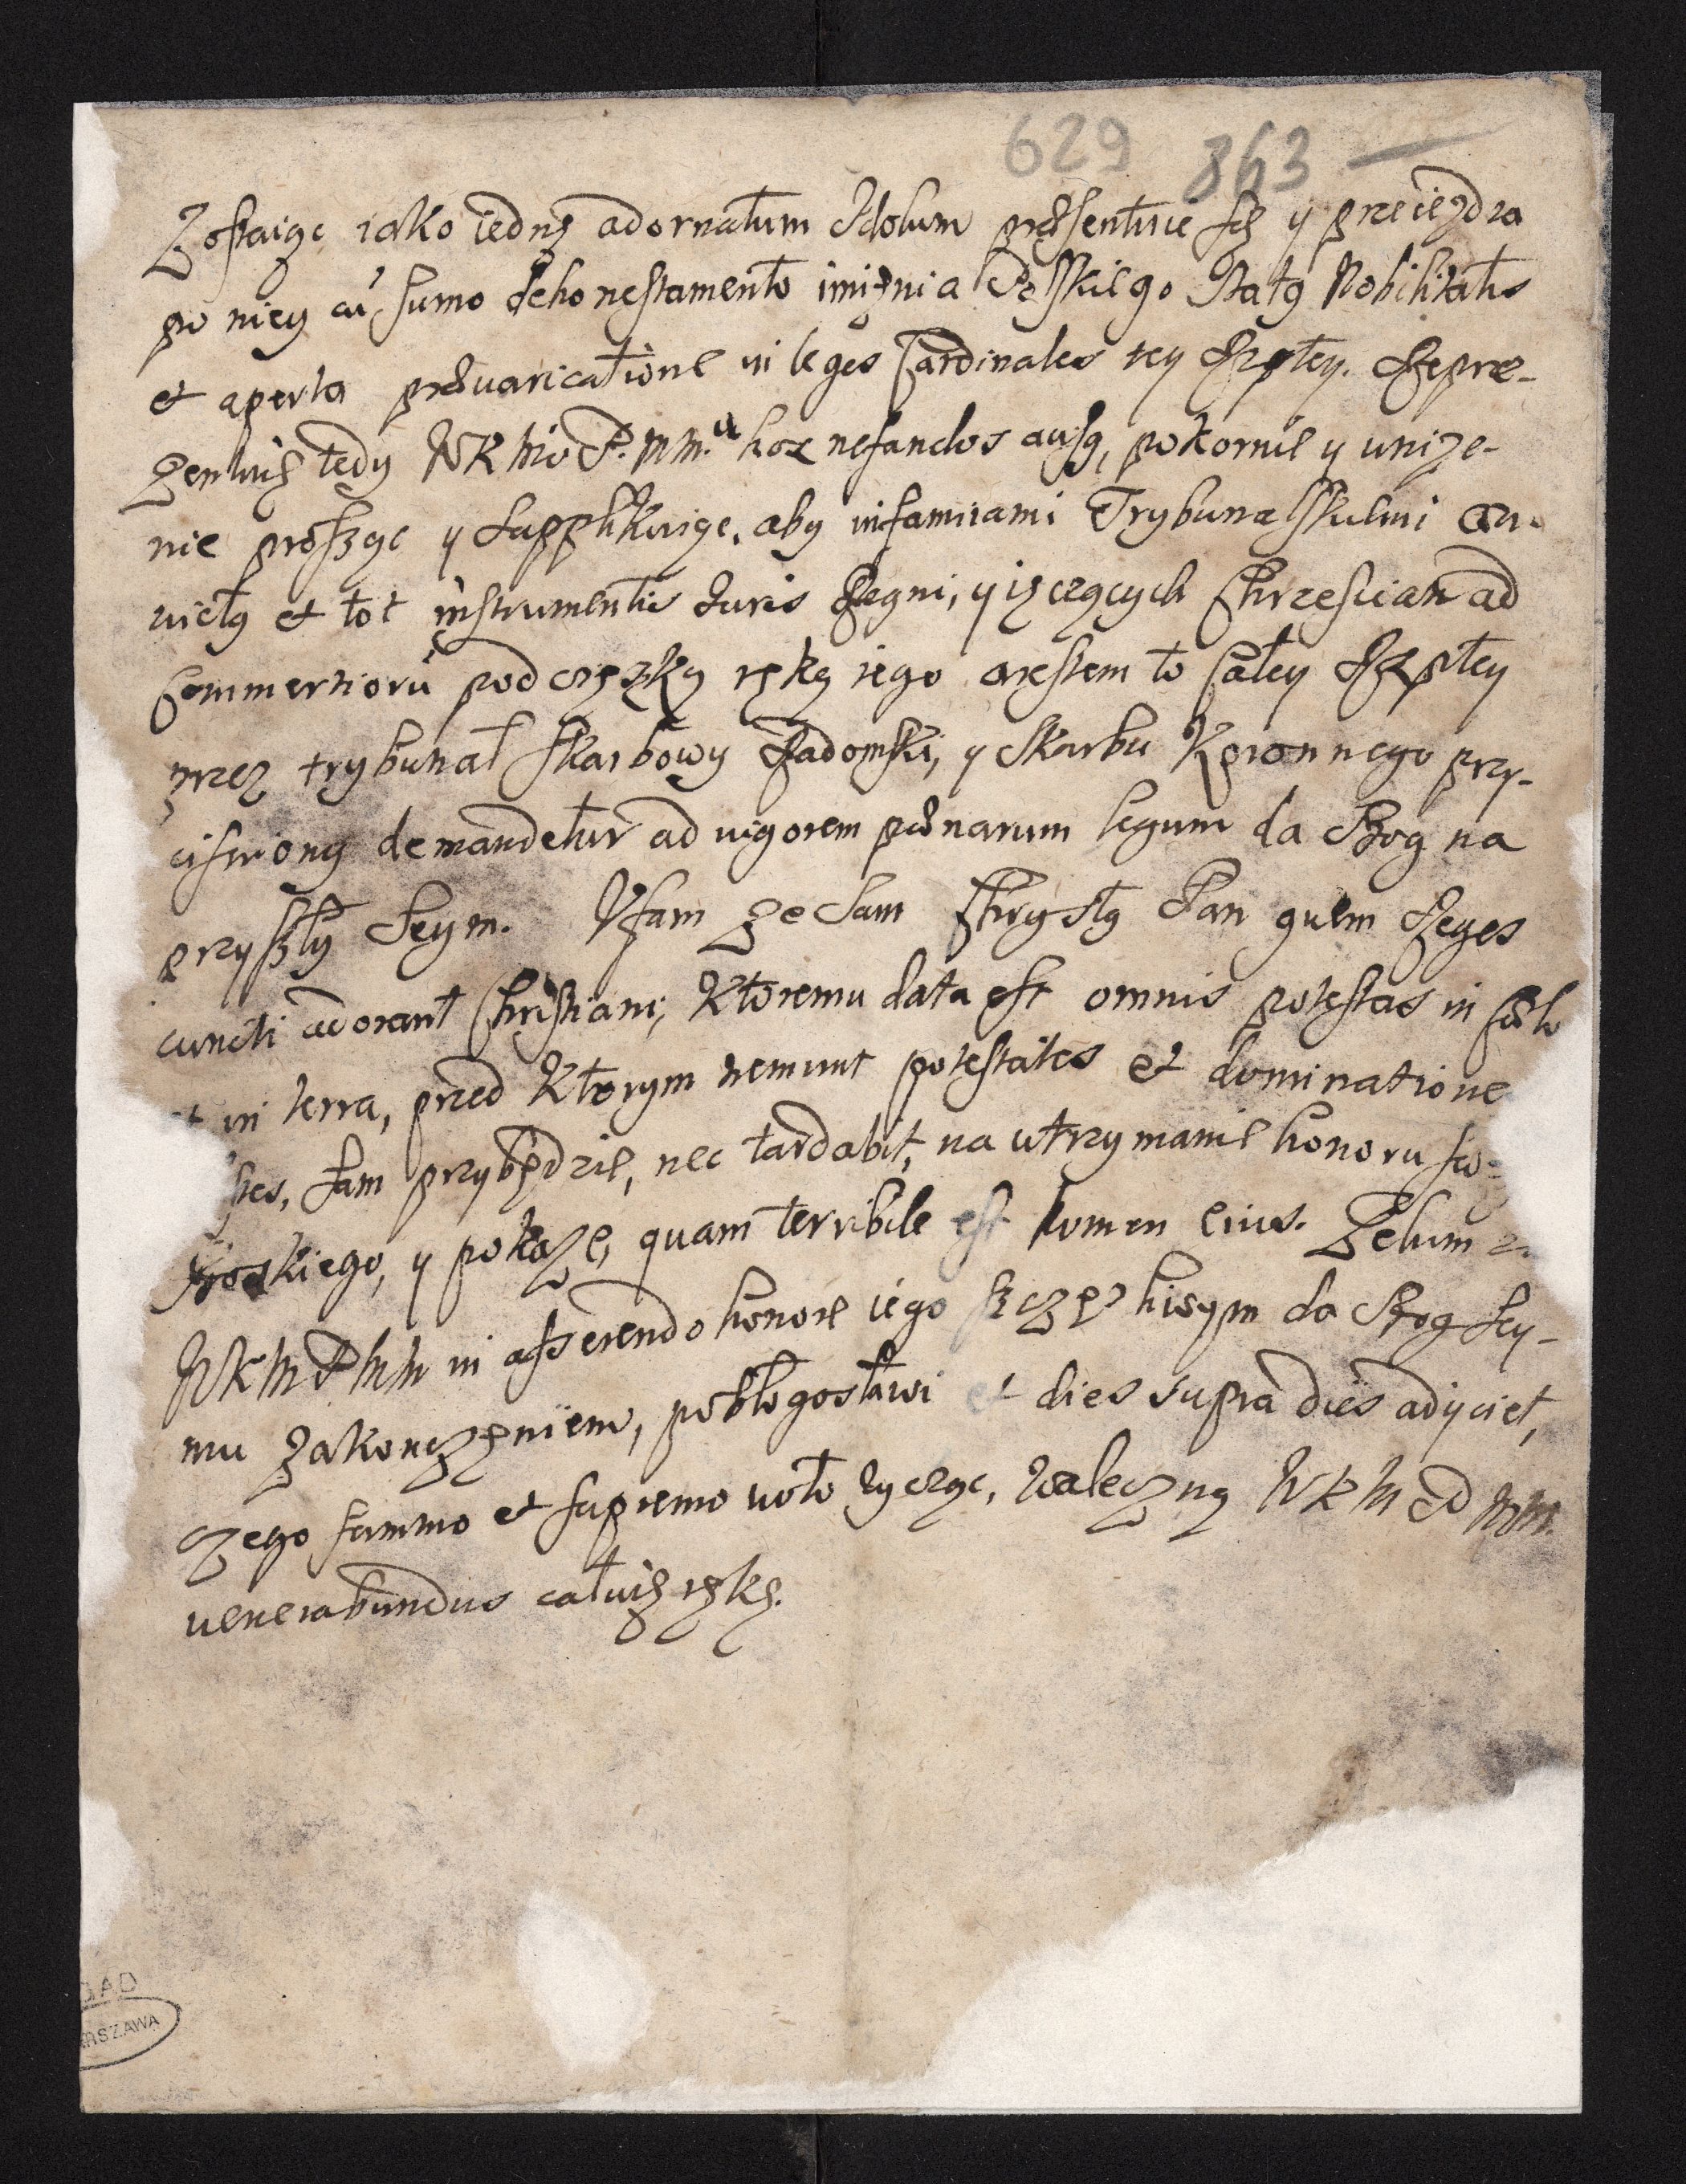 629 863 —
Zostaiąc iako iedną adornatum Idolum præsentuie się y przeieżdza
po niey cū sumo dehonestamento imięnia Polskiego Statq Nobilitatis
et aperta prævaricatione in leges Cardinales tey Rzptey. Repræ-
zentuię tedy WKMo P. M M. hos nefandos ausq, pokornie y uniże-
nie prosząc y supplikuiąc, aby infamiami Trybunalskiemi
victq et tot instrumentis Juris Regni, y ięczących Chrzescian ad
Commertiorū pod cięzką ręką iego arestem to Całey Rzptey
przez trybunał skarbowy Radomski, y Skarbu Koronnego przy-
cisniony demandetur ad vigorem pænarum legum da Bog na
przyszły Seym. Ufam że Sam Chrystq Pan quem Reges
cuncti adorant Christiani, Ktoremu data est omnis potestas in Cælo
et in terra, przed Ktorym tremunt potestates et dominatione
sam przybędzie, nec tardabit, na utrzymanie honoru swe-
Boskiego, y pokaże, quam terribile est Nomen eius. Zelum
WKM P M M in asserendo honore iego szczęśliwym da Bog Sey-
mu zakonczęniem, pobłogosławi et dies supra dies adyciet,
czego summo et supremo voto zycząc, waleczną WKM P MM.
venerabundus całuię rękę.
GAD
RSZAWA